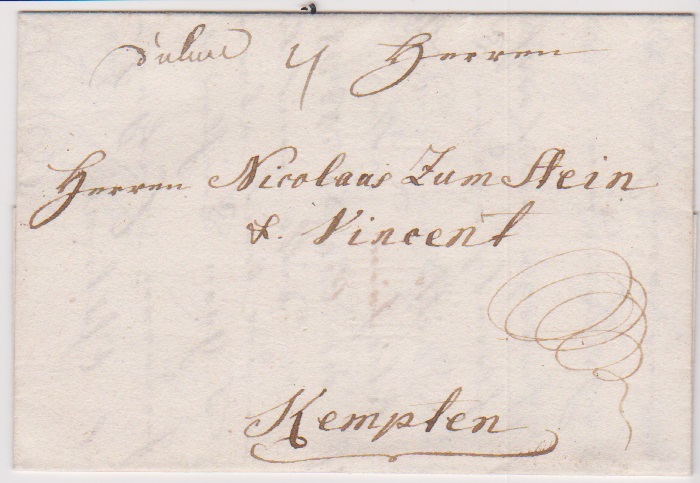 Herren
Herren Nicolaus Zum Stein
&. Vincent
Kempten